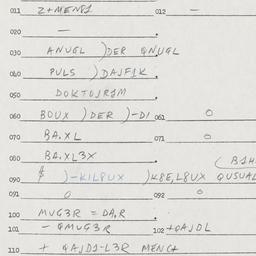 011 Z+MEN81 012 —
020 —
030 ANUGL )DER QNUGL
040 PULS )DAJF1K.
050 DOKTOJR1M
060 BOUX )DER )-DI 061 0
070 BA.XL 071 0
080 BA.XL3X
090 )-KILPUX )K8E,L8UX
091 0 092 0
100 MUG3R = DA,R
101 — QMUG3R 102 +QAJDL
110 + QAJD1-L3R MENG+